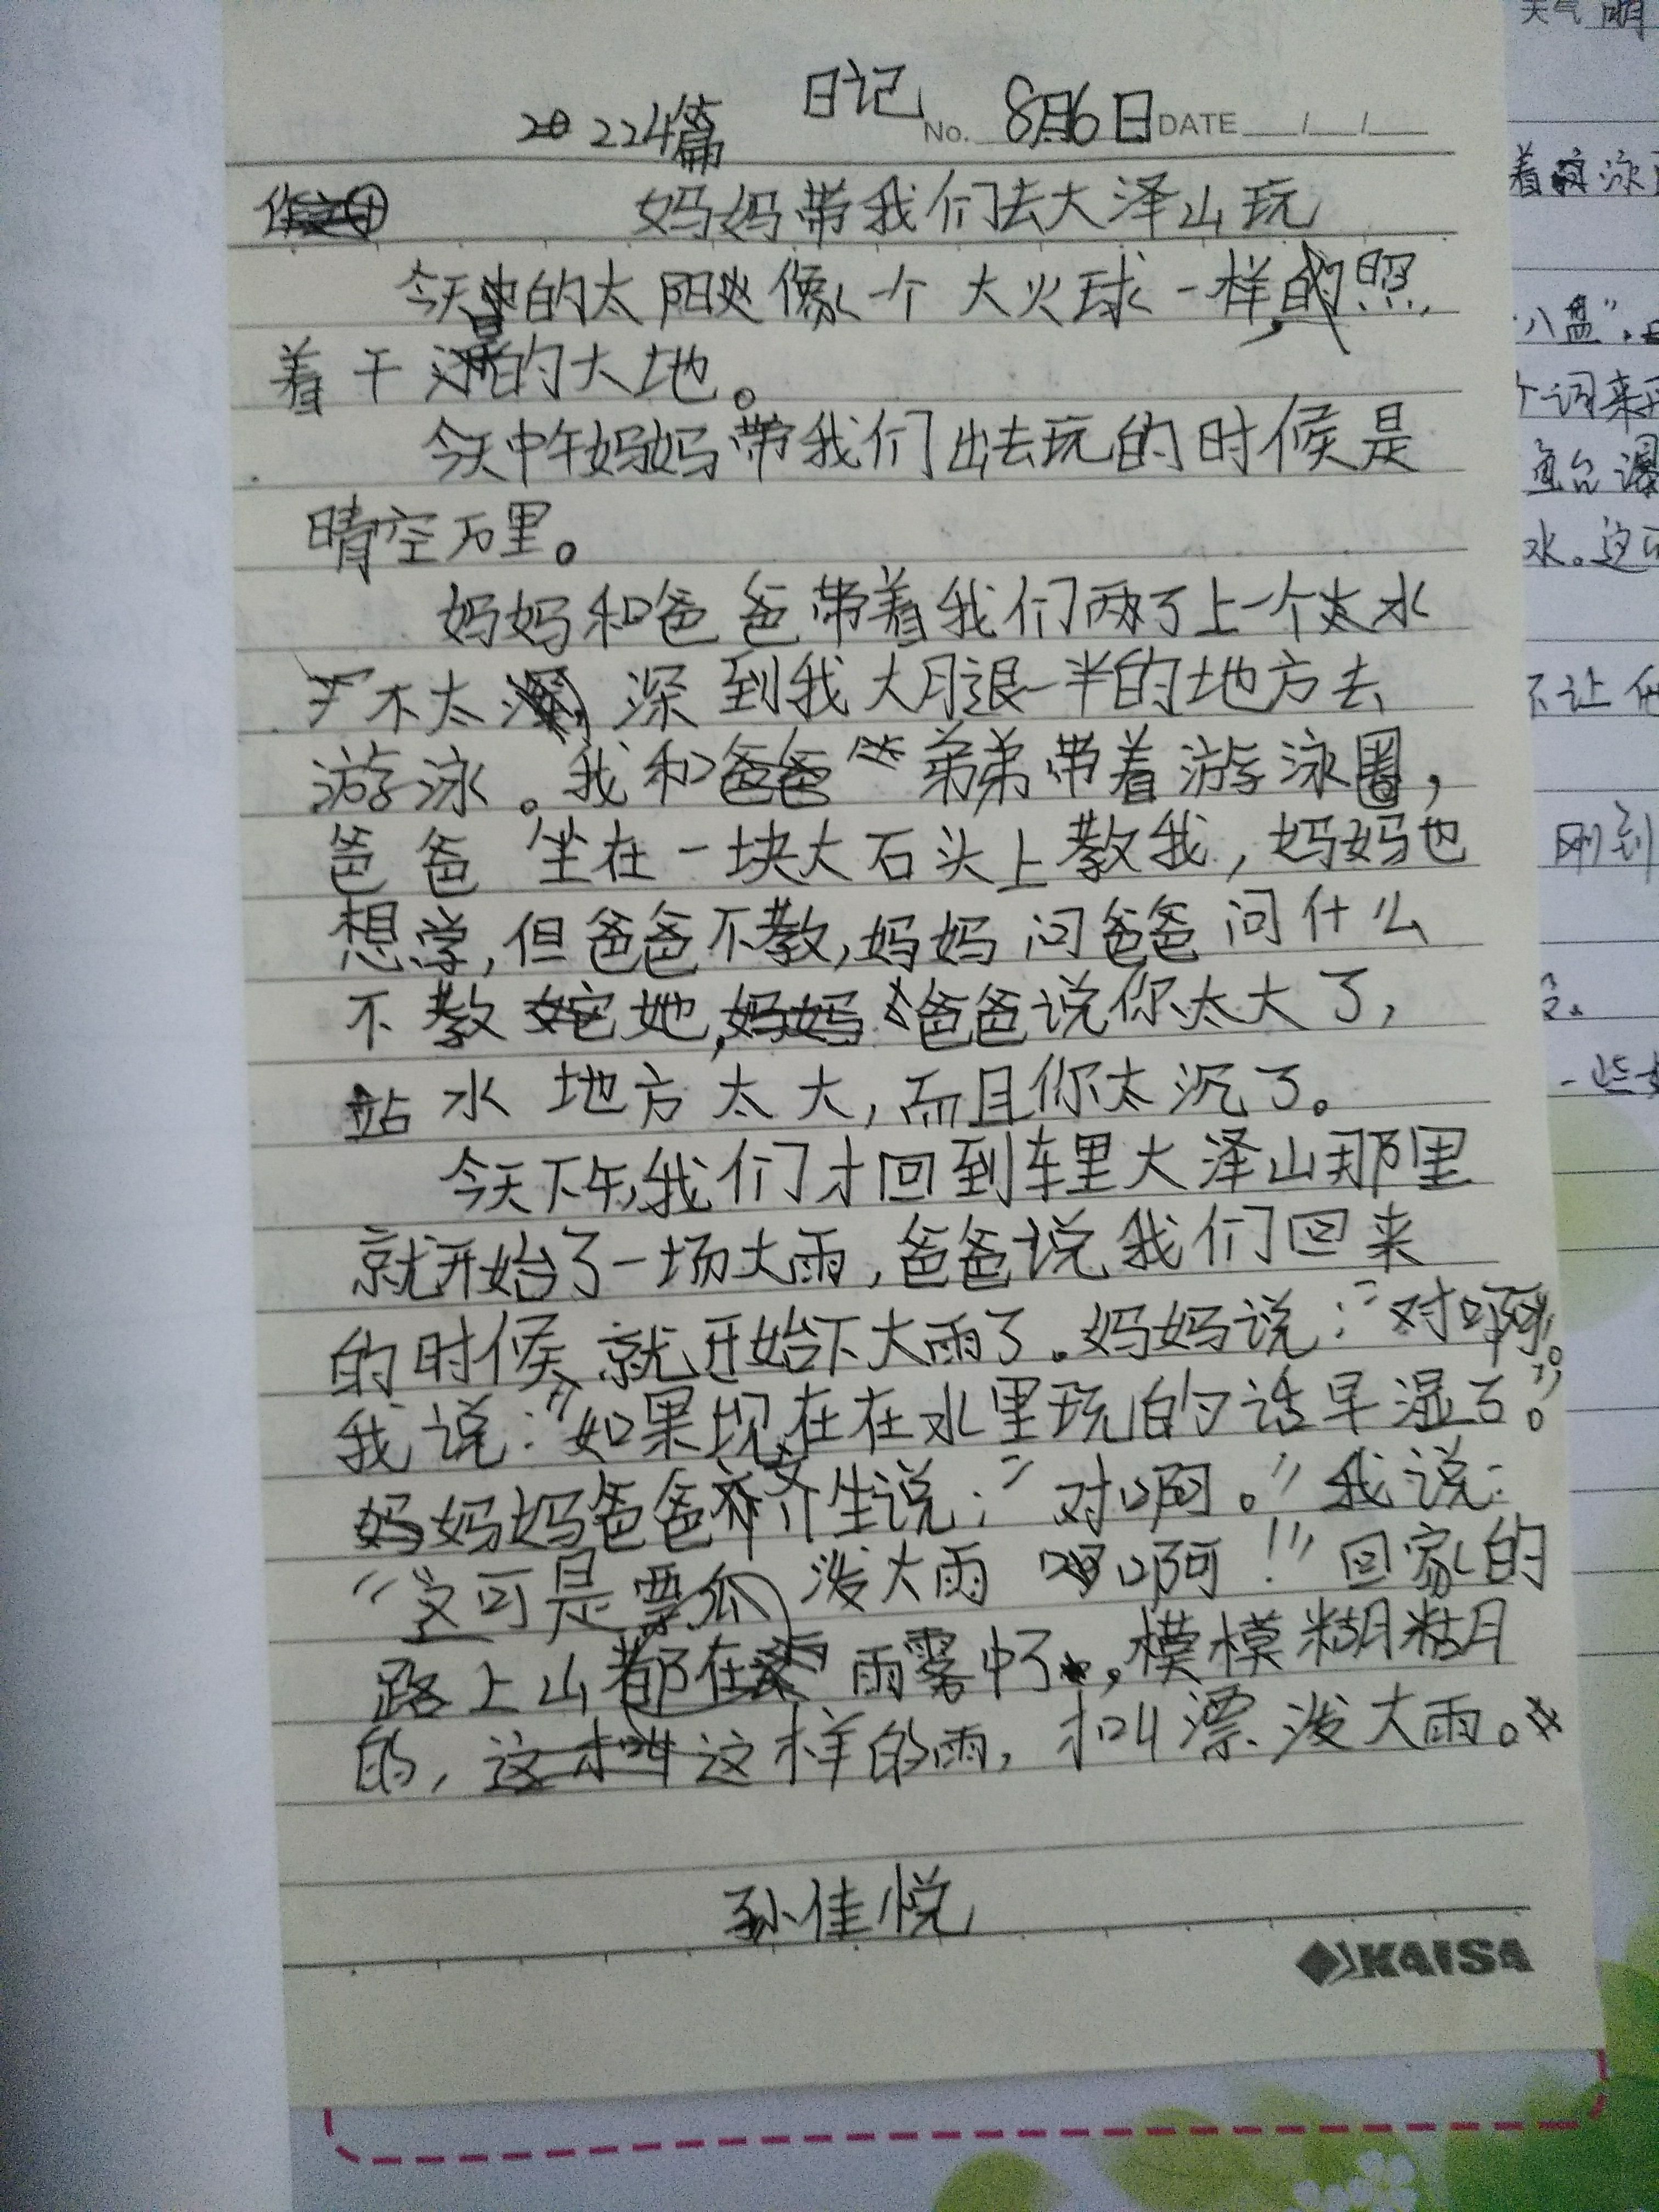 日记
224篇 No. 8月6日 DATE / /
妈妈带我们去大泽山玩
今天的太阳像一个大火球一样,照
着干的大地。
今天中午妈妈带我们出去玩的时候是
晴空万里。
妈妈和爸爸带着我们两了上一个水
不太深到我大腿一半的地方去
游泳。我和弟弟带着游泳圈,
爸爸坐在一块大石头上教我,妈妈也
想学,但爸爸不教,妈妈问爸爸问什么
不教她,爸爸说你太大了,
站水地方太大,而且你太沉了。
今天下午,我们才回到车里大泽山那里
就开始了一场大雨,爸爸说我们回来
的时候就开始下大雨了。妈妈说:“对啊。”
我说:“如果现在在水里玩的话早湿了。”
妈妈爸爸齐生说:“对啊。”我说:
“这可是票泼大雨啊!”回家的
路上山都在雨雾中了,模模糊糊
的,这样的雨,才叫漂泼大雨。
孙佳悦
KAISA
天气 晴
着 泳
八盘”,
个词来
鱼台瀑
水。这
不让他
刚到
一些